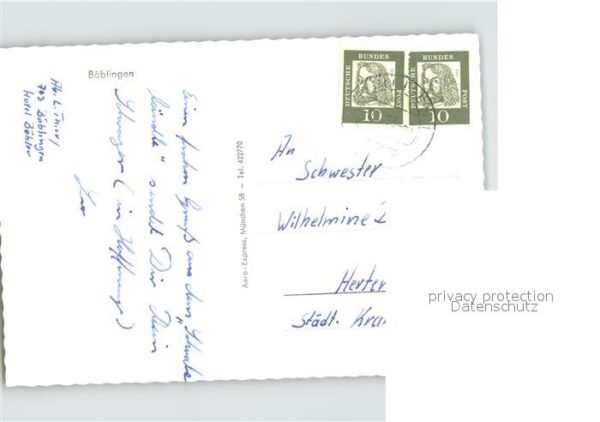 Böblingen
703 Böblingen
Hotel Böhler
Einen frohen Gruß aus dem "Schwabe
ländle" sendet Dir Dein
Schwager (in Hoffnung!)
Aero-Express, München 58 - Tel. 422770
DEUTSCHE BUNDES POST
10
DEUTSCHE BUNDES POST
10
An
Schwester
Wilhelmine
Herter
Städt. Kra
privacy protection
Datenschutz